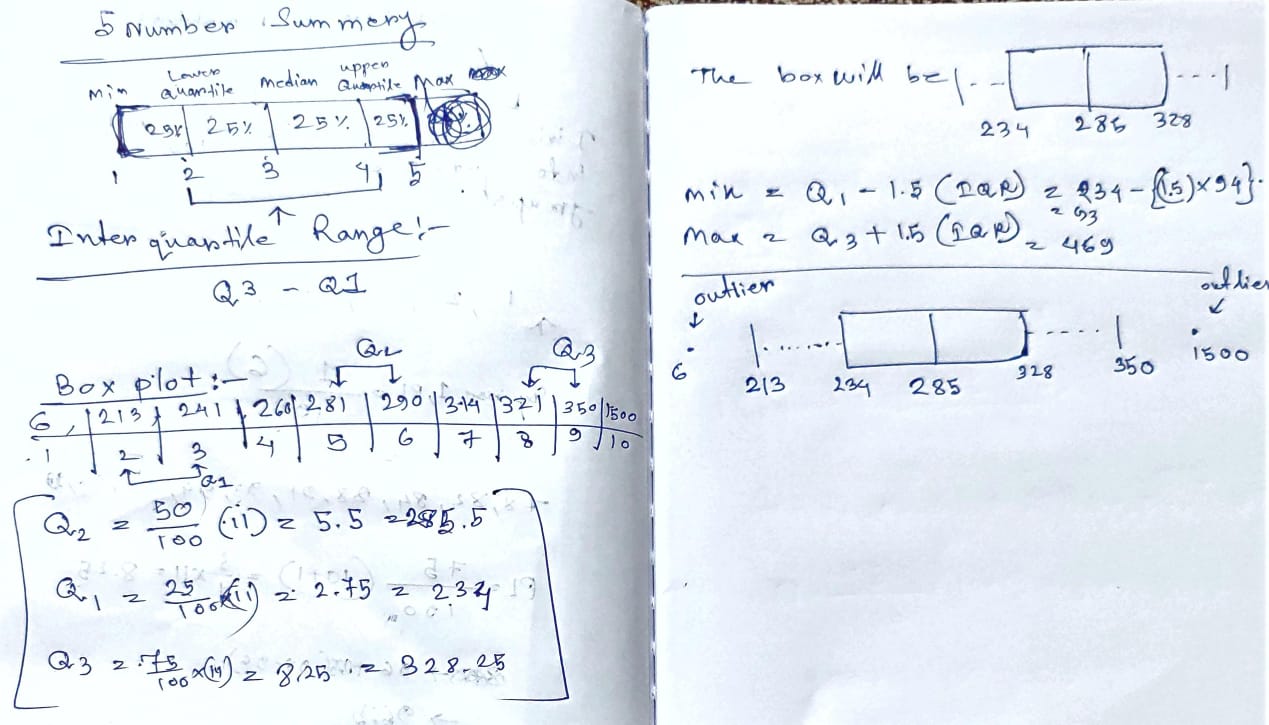 5 Number Summery
min Lower quantile median upper Quantile Max
25% 25% 25% 25%
1 2 3 4 5
Inter quartile Range:-
Q3 - Q1
Box plot :-
Q2 Q3
6, 213 241 260 281 290 314 321 350 1500
1 2 3 4 5 6 7 8 9 10
Q1
Q2 = 50/100 (11) = 5.5 = 285.5
Q1 = 25/100 x (11) = 2.75 = 234
Q3 = 75/100 x (11) = 8.25 = 328.25
The box will be
234 285 328
min = Q1 - 1.5 (IQR) = 234 - {(1.5) x 94}.
= 93
Max = Q3 + 1.5 (IQR) = 469
outlier outlier
6 213 234 285 328 350 1500